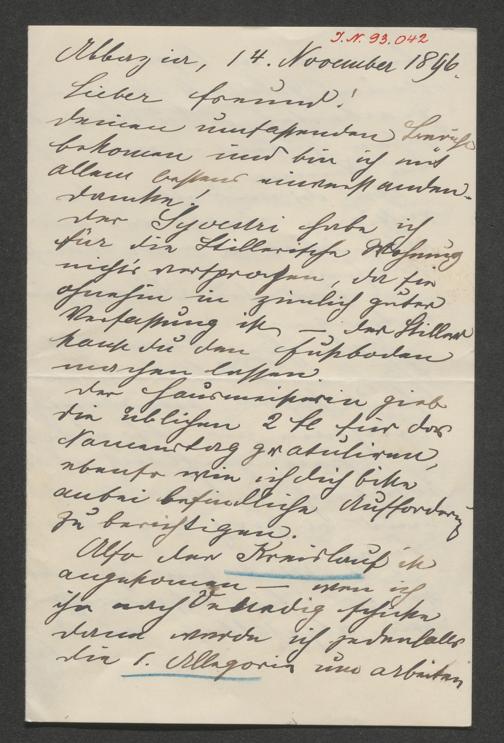 I. N. 93.042
Abbazia, 14. November 1896.
Lieber Freund!
deinen umfassenden Bericht
bekomen und bin ich mit
allem bestens einverstanden.
danke!
der Sylvestri habe ich
für die Stillerische Wohnung
nichts versprochen, da sie
ohnehin in zimlich guter
Verfassung ist — der Stiller
kanst du den Fußboden
machen lassen.
der Hausmeisterin gieb
die üblichen 2 fl für das
Namenstag gratuliren,
ebenso wie ich dich bitte
anbei befindliche Aufforderung
zu berichtigen.
Also der Kreislauf ist
angekomen — wen ich
ihn nach Venedig schicke
dann werde ich jedenfalls
die 1. Allegorie um arbeiten